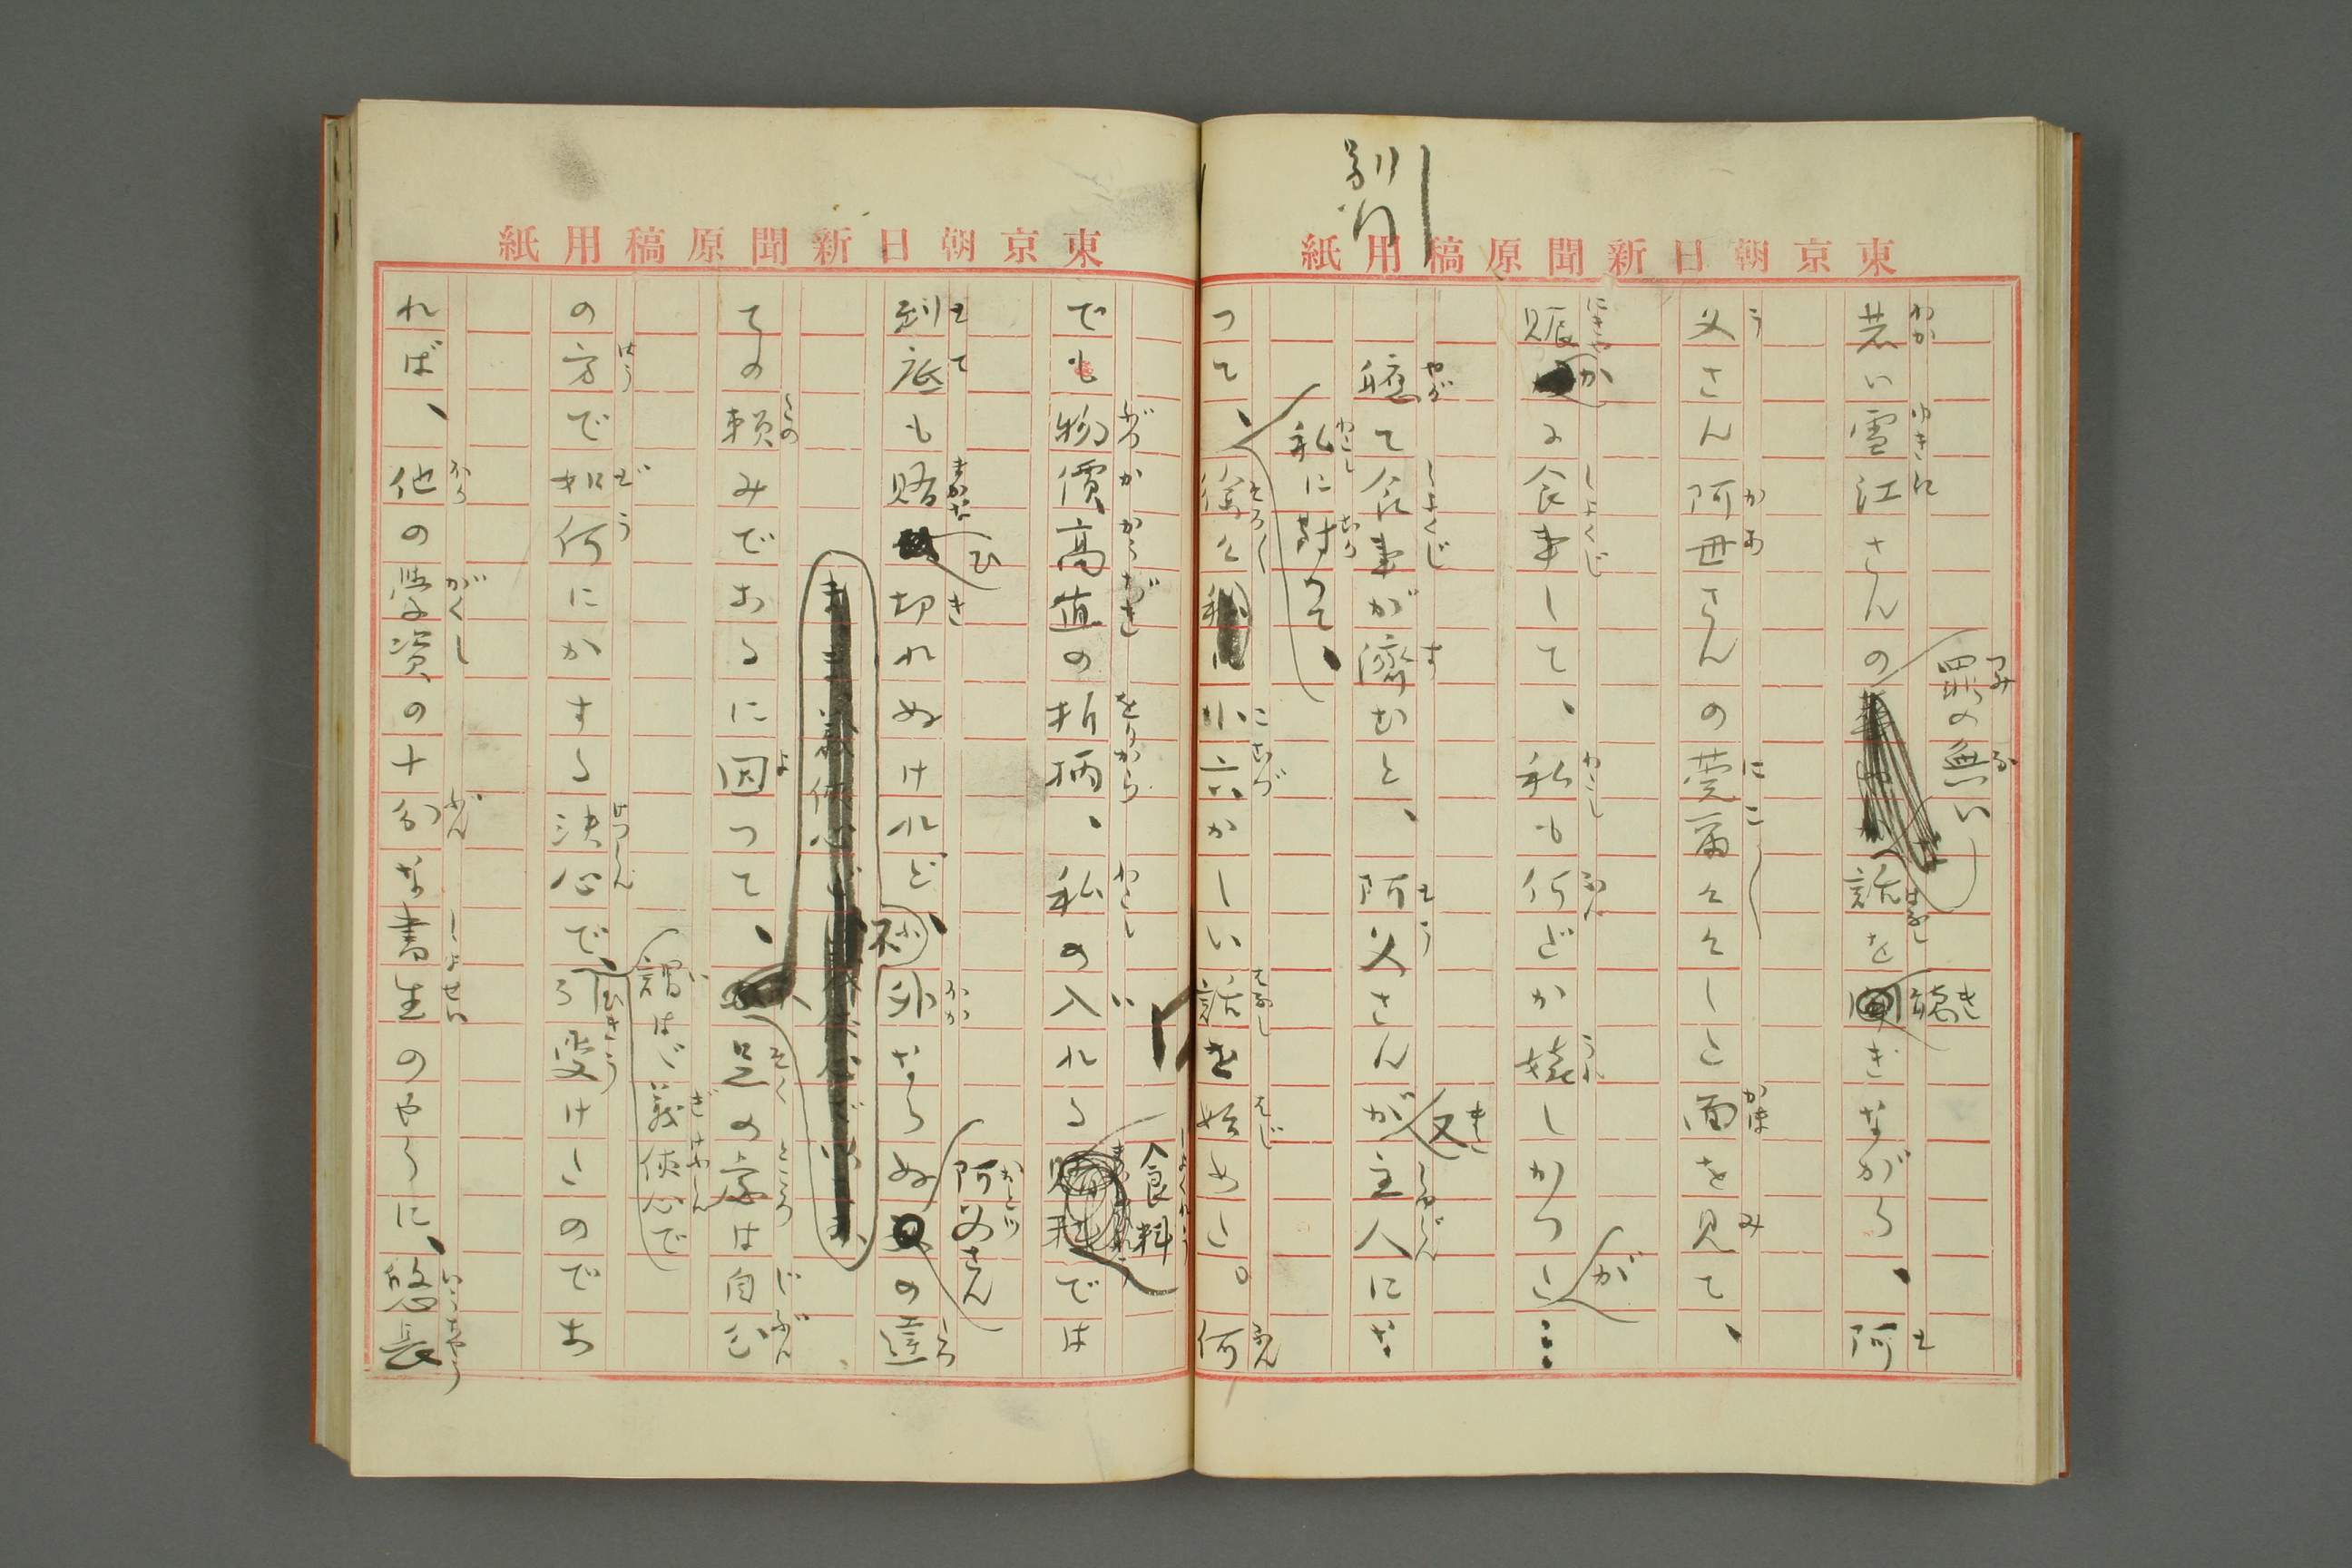 別行
東京朝日新聞原稿用紙
若い雪江さんの罪の無い話を聴きながら、阿
父さん阿母さんの莞爾々々した面を見て、
賑かに食事して、私も何だか嬉しかつたが…
軈て食事が済むと、阿父さんが又主人にな
つて、私に対つて、徐々小六かしい話を始めた。何
東京朝日新聞原稿用紙
でも物價高値の折柄、私の入れる食料では
到底も賄ひ切れぬけれど、外ならぬ阿父さんの達
ての頼みであるに因つて、不足の處は自分
の方で如何にかする決心で、謂はゞ義侠心で引受けたのであ
れば、他の学資の十分な書生のやうに、悠長